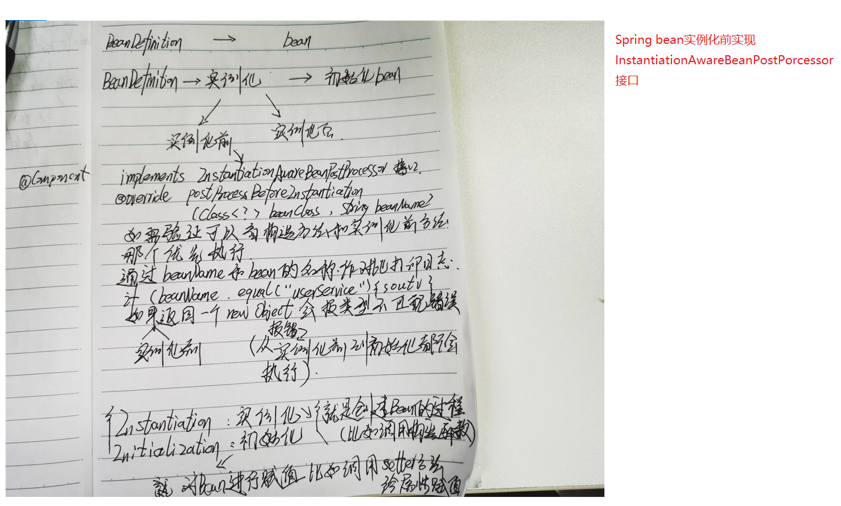 BeanDefinition → bean
BeanDefinition → 实例化 → 初始化bean
实例化前 实例化后.
@Component
implements InstantiationAwareBeanPostProcessor 接口.
@override postProcessBeforeInstantiation
(Class<?> beanClass, String beanName)
如需验证可以看构造方法和实例化前方法
哪个优先执行
通过beanName和bean的名称作对比打印日志.
if (beanName.equal("userService"){soutv}
如果返回一个new Object会报类型不匹配错误
报错
实例化前 (从实例化前到初始化都不会
执行).
Instantiation : 实例化 就是创建Bean的过程
(比如调用构造函数)
Initialization : 初始化
对Bean进行赋值 比如调用setter方法
给属性赋值
Spring bean实例化前实现
InstantiationAwareBeanPostPorcessor
接口